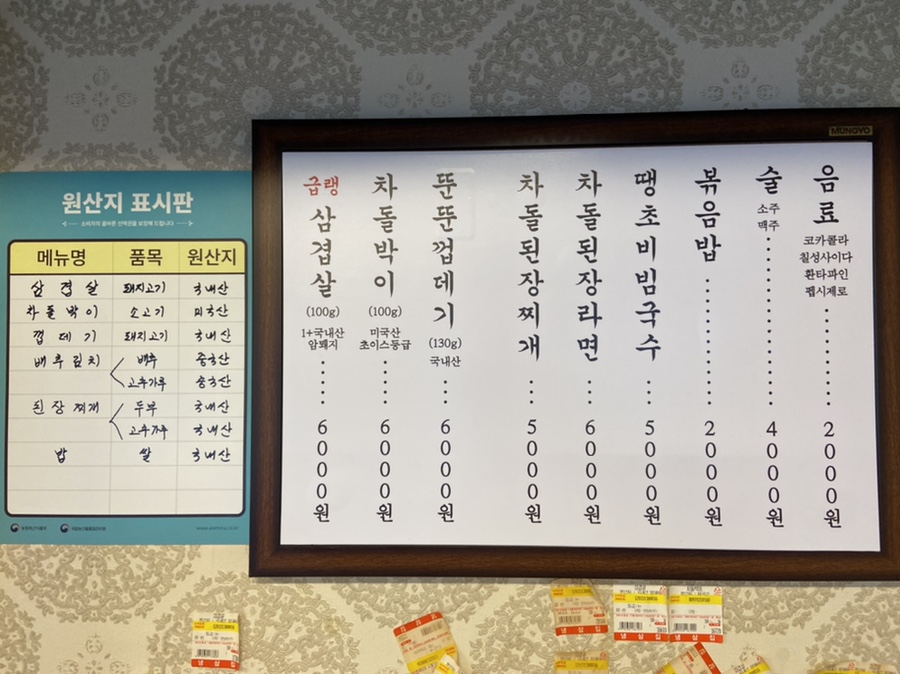 원산지 표시판
소비자의 올바른 선택권을 보장해 드립니다
메뉴명 품목 원산지
삼겹살 돼지고기 국내산
차돌박이 소고기 미국산
껍데기 돼지고기 국내산
배추김치 배추 중국산
고추가루 중국산
된장찌개 두부 국내산
고추가루 국내산
밥 쌀 국내산
MUNGYO
급랭 삼겹살
(100g)
1+국내산
암퇘지
6000원
차돌박이
(100g)
미국산
초이스등급
6000원
뚠뚠껍데기
(130g)
국내산
6000원
차돌된장찌개
5000원
차돌된장라면
6000원
땡초비빔국수
5000원
볶음밥
2000원
술
소주
맥주
4000원
음료
코카콜라
칠성사이다
환타파인
펩시제로
2000원
냉삼집
냉삼집
냉삼집